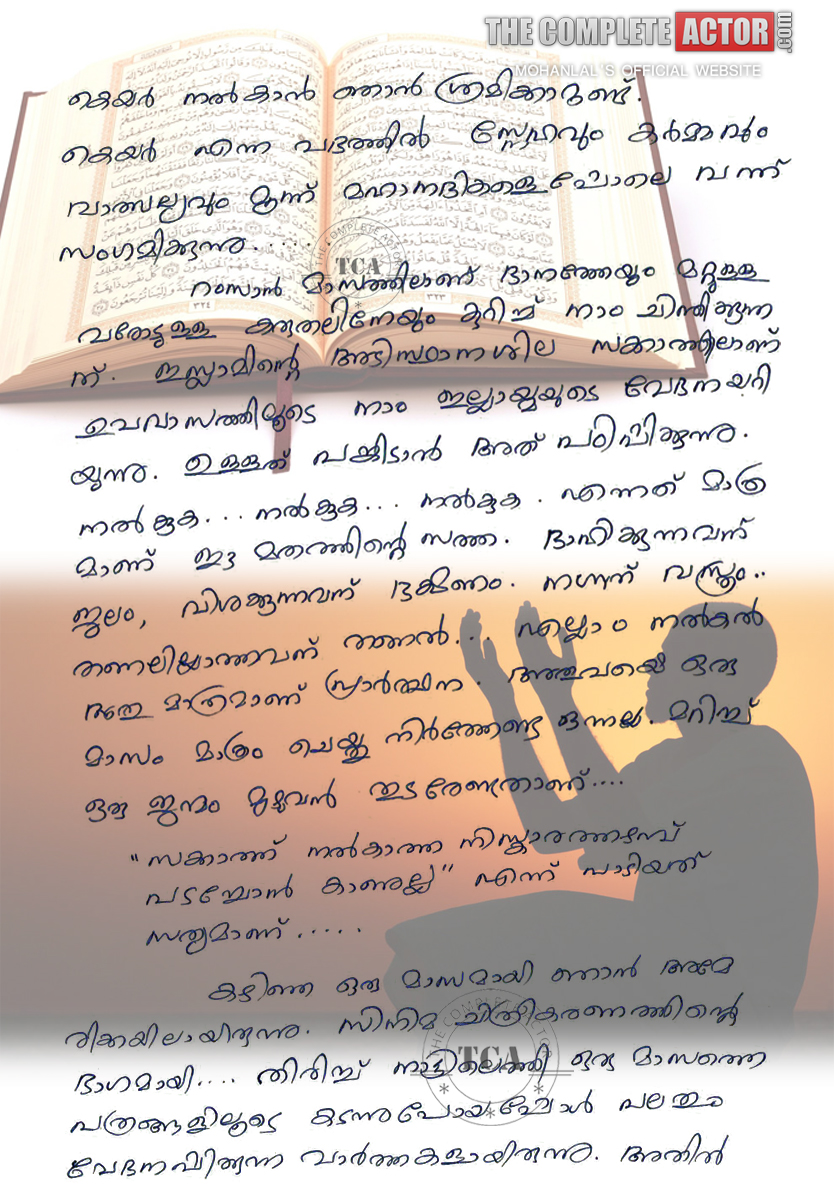 THE COMPLETE ACTOR.com
MOHANLAL'S OFFICIAL WEBSITE
കെയർ നൽകാൻ ഞാൻ ശ്രമിക്കാറുണ്ട്.
കെയർ എന്ന പദത്തിൽ സ്നേഹവും കർമ്മവും
വാത്സല്യവും മൂന്ന് മഹാനദികളെപ്പോലെ വന്ന്
സംഗമിക്കുന്നു......
THE COMPLETE ACTOR
TCA
റംസാൻ മാസത്തിലാണ് ദാനത്തേയും മറ്റുള്ള
വരോടുള്ള കരുതലിനേയും കുറിച്ച് നാം ചിന്തിക്കുന്ന
ത്. ഇസ്ലാമിന്റെ അടിസ്ഥാനശില സക്കാത്തിലാണ്
ഉപവാസത്തിലൂടെ നാം ഇല്ലായ്മയുടെ വേദനയറി
യുന്നു. ഉള്ളത് പങ്കിടാൻ അത് പഠിപ്പിക്കുന്നു.
നൽകുക... നൽകുക... നൽകുക. എന്നത് മാത്ര
മാണ് ഈ മതത്തിന്റെ സത്ത. ദാഹിക്കുന്നവന്
ജലം, വിശക്കുന്നവന് ഭക്ഷണം. നഗ്നന് വസ്ത്രം..
തണലില്ലാത്തവന് തണൽ... എല്ലാം നൽകൽ
മാത്രമാണ് പ്രാർത്ഥന. അതുവയെ ഒരു
മാസം മാത്രം ചെയ്തു നിർത്തേണ്ട ഒന്നല്ല. മറിച്ച്
ഒരു ജന്മം മുഴുവൻ തുടരേണ്ടതാണ്....
"സക്കാത്ത് നൽകാത്ത നിസ്കാരത്തഴമ്പ്
പടച്ചോൻ കാണൂല്ല" എന്ന് പാടിയത്
സത്യമാണ്.....
കഴിഞ്ഞ ഒരു മാസമായി ഞാൻ അമേ
രിക്കയിലായിരുന്നു. സിനിമ ചിത്രീകരണത്തിന്റെ
ഭാഗമായി.... തിരിച്ച് നാട്ടിലെത്തി ഒരു മാസത്തെ
THE COMPLETE ACTOR
TCA
പത്രങ്ങളിലൂടെ കടന്നുപോയപ്പോൾ പലതും
വേദനപ്പിക്കുന്ന വാർത്തകളായിരുന്നു. അതിൽ